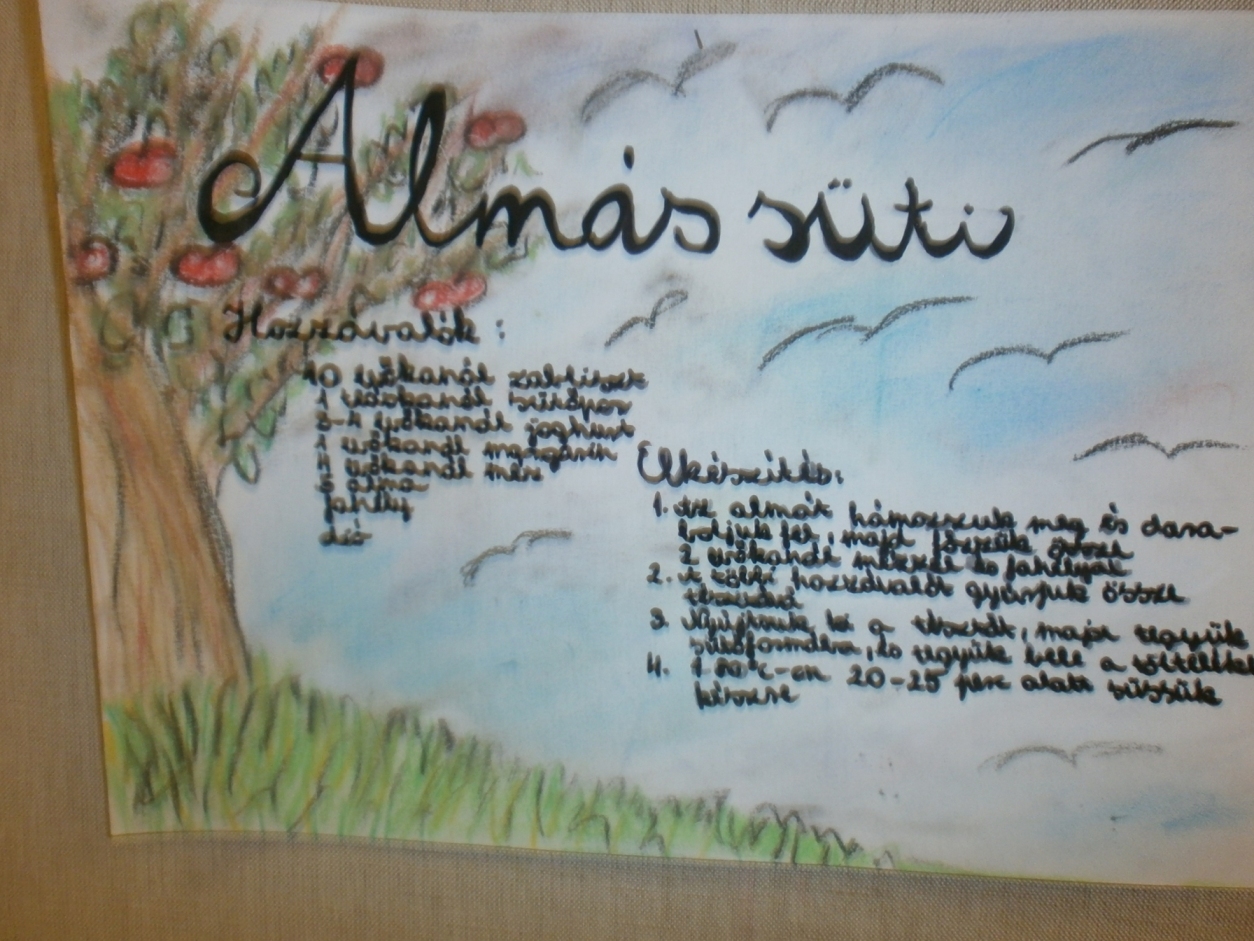 Almás süti
Hozzávalók:
10 evőkanál zabliszt
1 kiskanál sütőpor
3-4 evőkanál joghurt
1 evőkanál margarin
4 evőkanál méz
5 alma
fahéj
dió
Elkészítés:
1. Az almát hámozzuk meg és dara-
boljuk fel, majd főzzük össze
2 evőkanál mézzel és fahéjjal
2. A többi hozzávalót gyúrjuk össze
tésztává
3. Nyújtsuk ki a tésztát, majd tegyük
sütőformába, és tegyük bele a tölteléket
4. 180°C-on 20-25 perc alatt süssük
készre